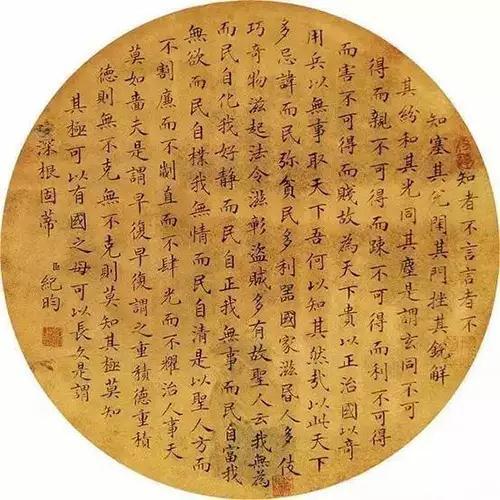 知者不言言者不
知塞其兌閉其門挫其銳解
其紛和其光同其塵是謂玄同不可
得而親不可得而踈不可得而利不可得
而害不可得而賤故為天下貴以正治國以奇
用兵以無事取天下吾何以知其然哉以此天下
多忌諱而民弥貧民多利器國家滋昏人多伎
巧奇物滋起法令滋彰盜賊多有故聖人云我無為
而民自化我好靜而民自正我無事而民自富我
無欲而民自樸我無情而民自清是以聖人方而
不割廉而不劌直而不肆光而不耀治人事天
莫如嗇夫是謂早復早復謂之重積德重積
德則無不克無不克則莫知其極莫知
其極可以有國之母可以長久是謂
深根固蒂 臣紀昀